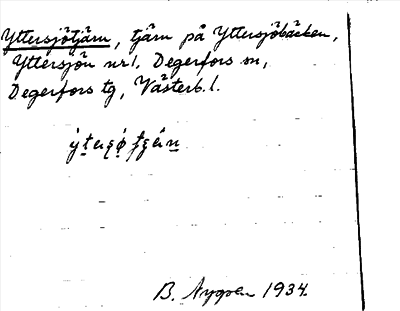 Yttersjötjärn, tjärn på Yttersjöbäcken,
Yttersjön nr 1, Degerfors sn,
Degerfors tg, Västerb. l.
B. Nygren 1934.